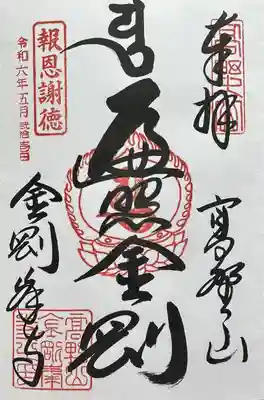 奉拝
高野山
遍照金剛
報恩謝徳
令和六年五月
金剛峯寺